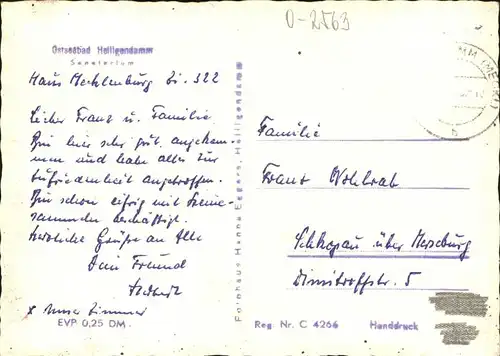 0-2563
Ostseebad Heiligendamm
Sanatorium
Haus Mecklenburg Zi. 322
Lieber Franz u. Familie
Bin hier sehr gut angekom-
men und habe alles zur
Zufriedenheit angetroffen.
Bin schon eifrig mit Steine-
sammeln beschäftigt.
Herzliche Grüße an Alle
Dein Freund
Herbert
x unser Zimmer
EVP 0,25 DM
Fotohaus Hanns Eggers, Heiligendamm
Familie
Franz Wohlrab
Schkopau über Merseburg
Dimitroffstr. 5
Reg. Nr. C 4266 Handdruck